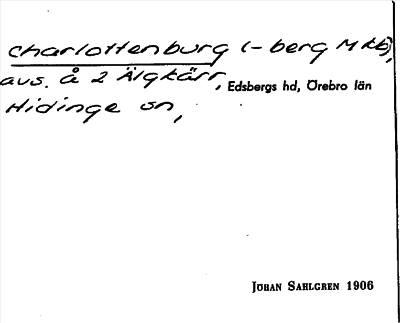 Charlottenburg (-berg M Kb),
avs. å 2 Älgkärr, Edsbergs hd, Örebro län
Hidinge sn,
JOHAN SAHLGREN 1906